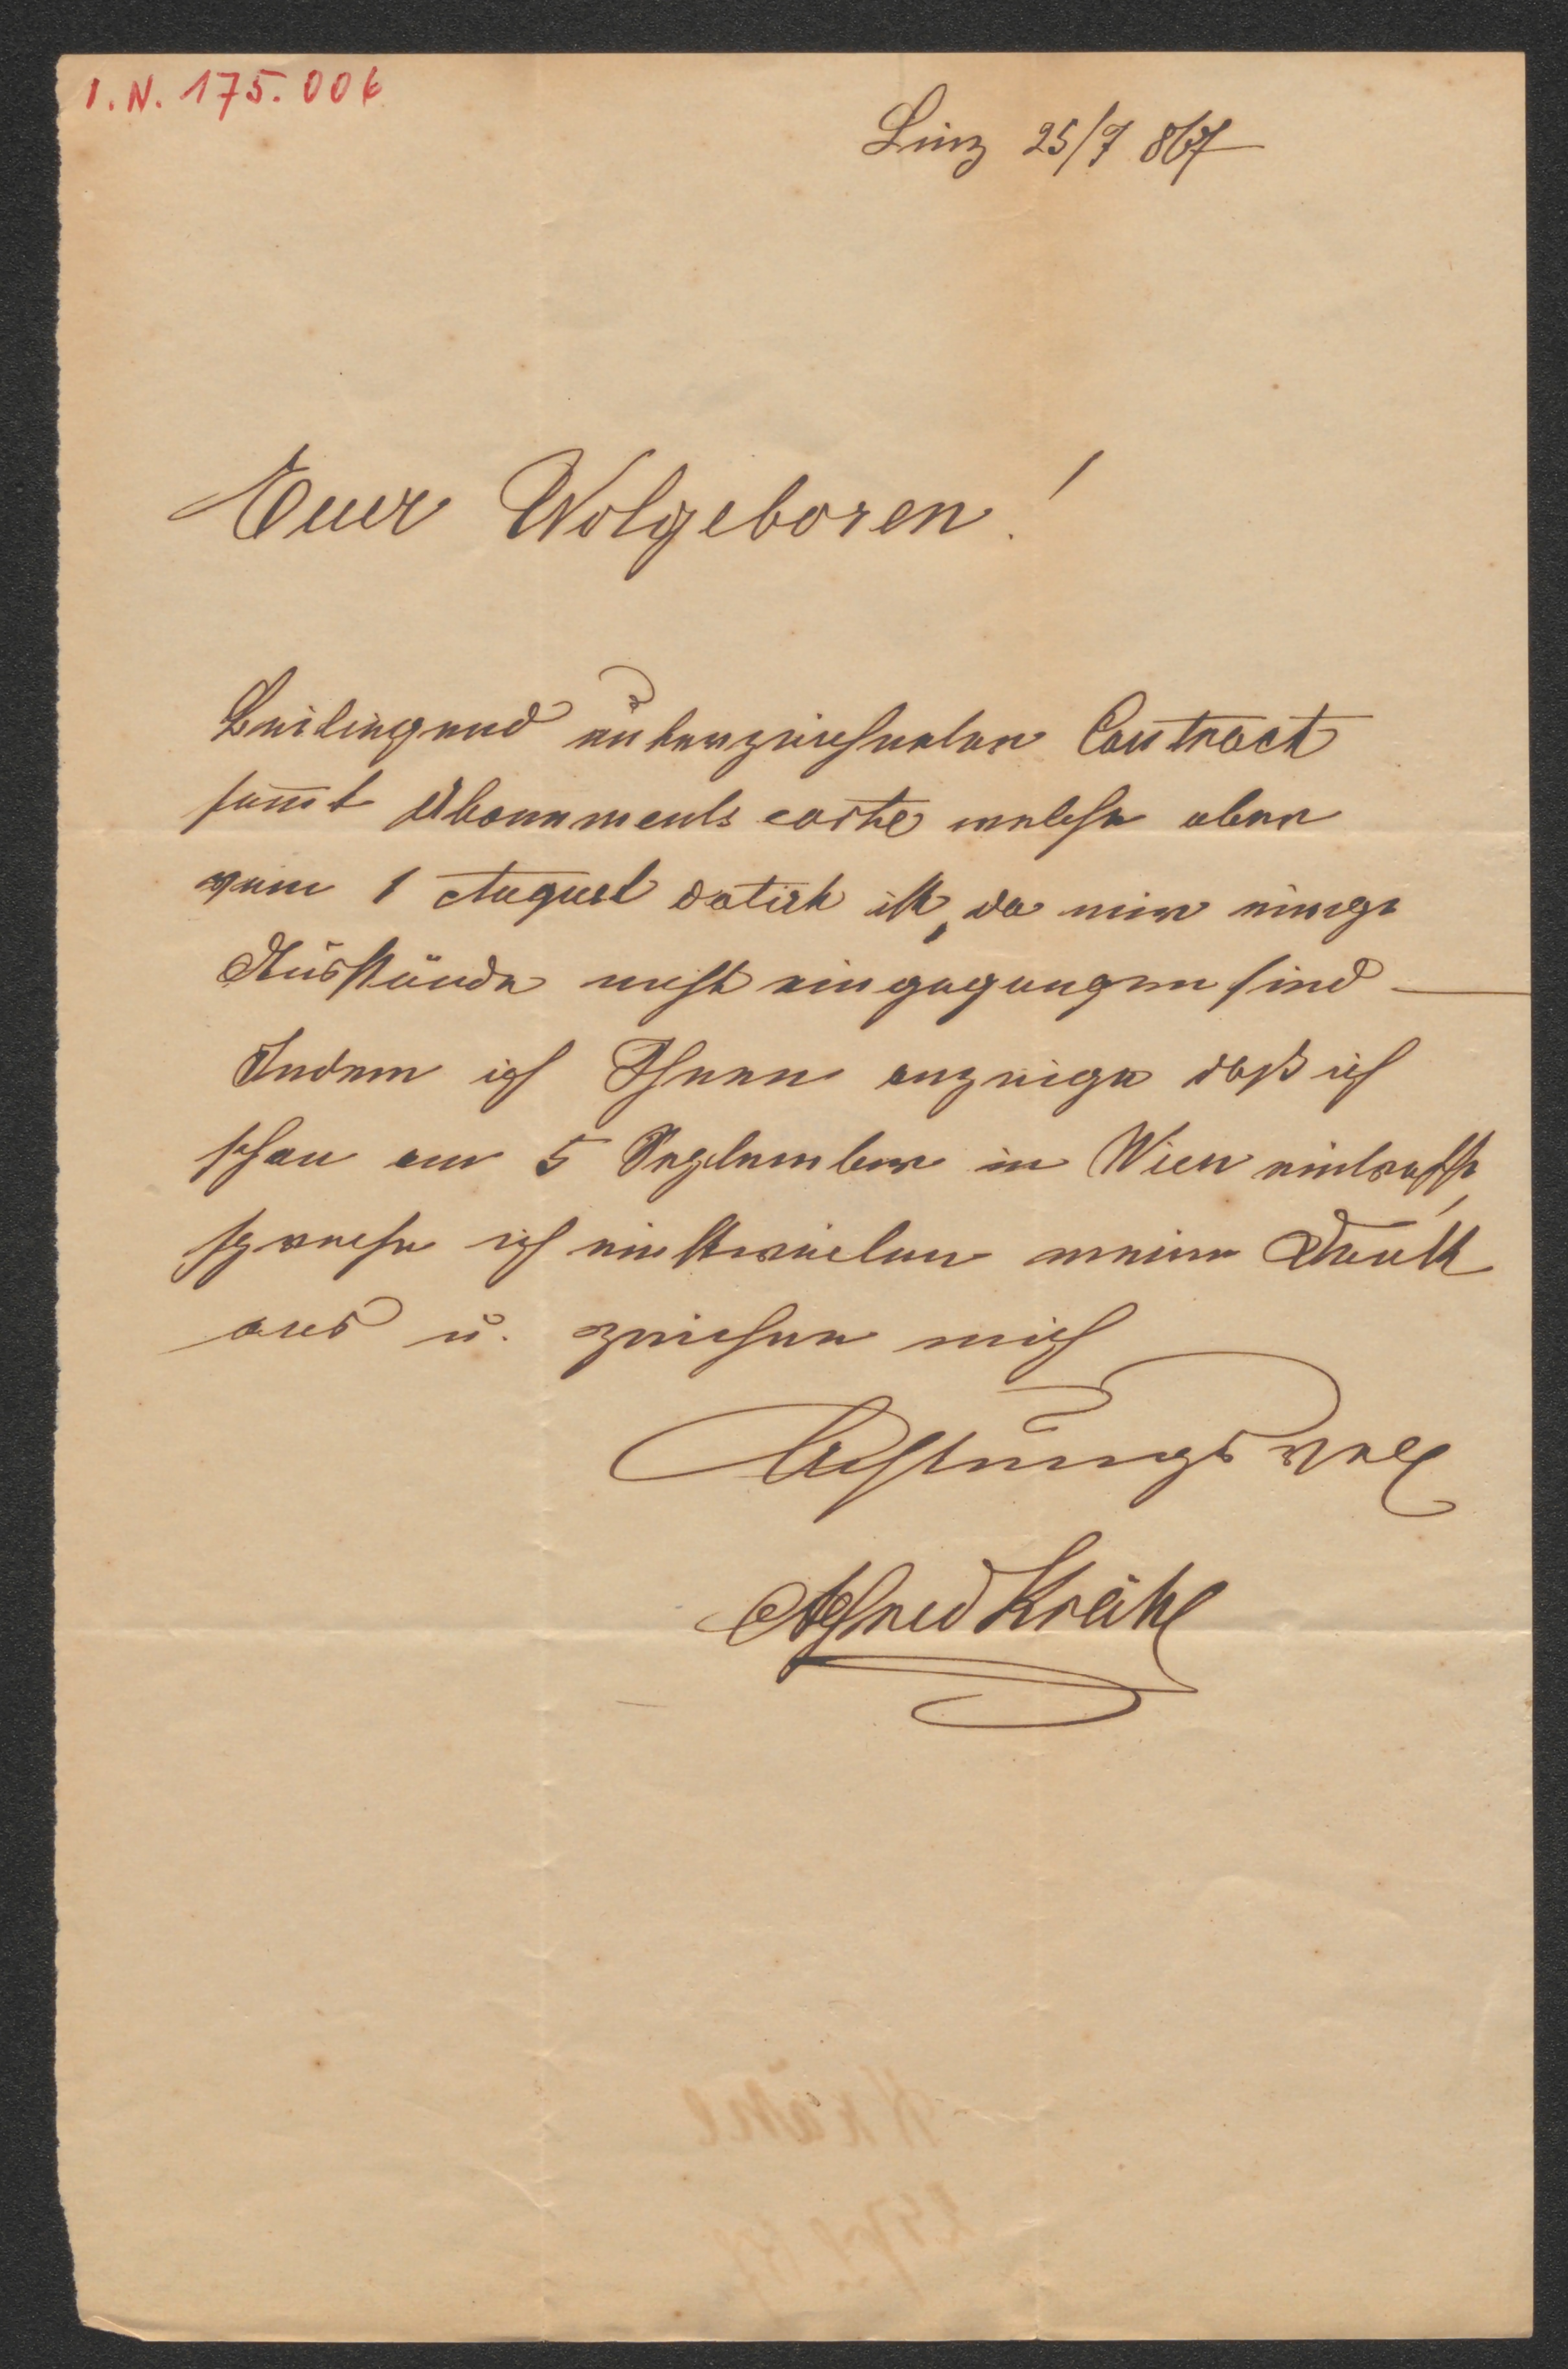 I. N. 175.006
Linz 25/7 867
Euer Wolgeboren!
Beiliegend unterzeichneten Contract
sam̅t Abonnements carte welche aber
vom 1 August datirt ist, da mir einige
Ausstände nicht eingegangen sind —
Indem ich Ihnen anzeige daß ich
schon am 5 September in Wien eintreffe,
spreche ich einstweilen meinen Dank
aus u. zeichne mich
Achtungsvoll
Alfred Krähl